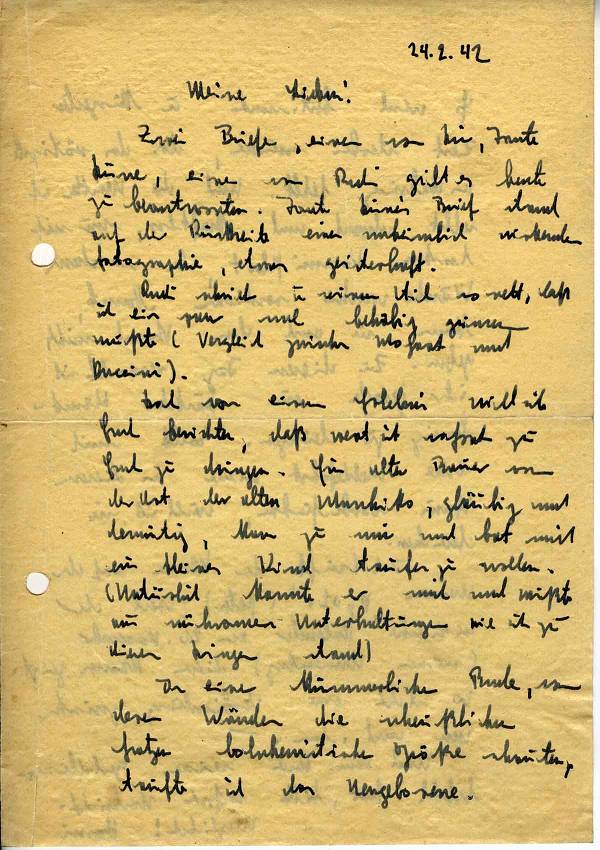 24.2.42
Meine Lieben!
Zwei Briefe, einen von Dir, Tante
einen von Rudi gilt es heute
zu beantworten. Tante Brief stand
auf der Rückseite einer unheimlich wirkenden
Fotographie, etwas geisterhaft.
Rudi schrieb in einem Stil so nett, daß
ich ein paar mal behäbig grinsen
mußte (Vergleich zwischen Mozart und
Puccini).
von einem Erlebnis will ich
Euch berichten, daß wert ist zu
Euch zu dringen. Ein alter Bauer von
der Art der alten gläubig und
demütig, kam zu mir und bat mich
ein kleines Kind taufen zu wollen.
(Natürlich kannte er mich und wußte
aus mühsamen Unterhaltungen wie ich zu
diesen Dingen stand)
In eine kümmerliche Bude, von
deren Wänden die scheußlichen
Fratzen bolschewistische Größe schauten,
taufte ich das Neugeborene.